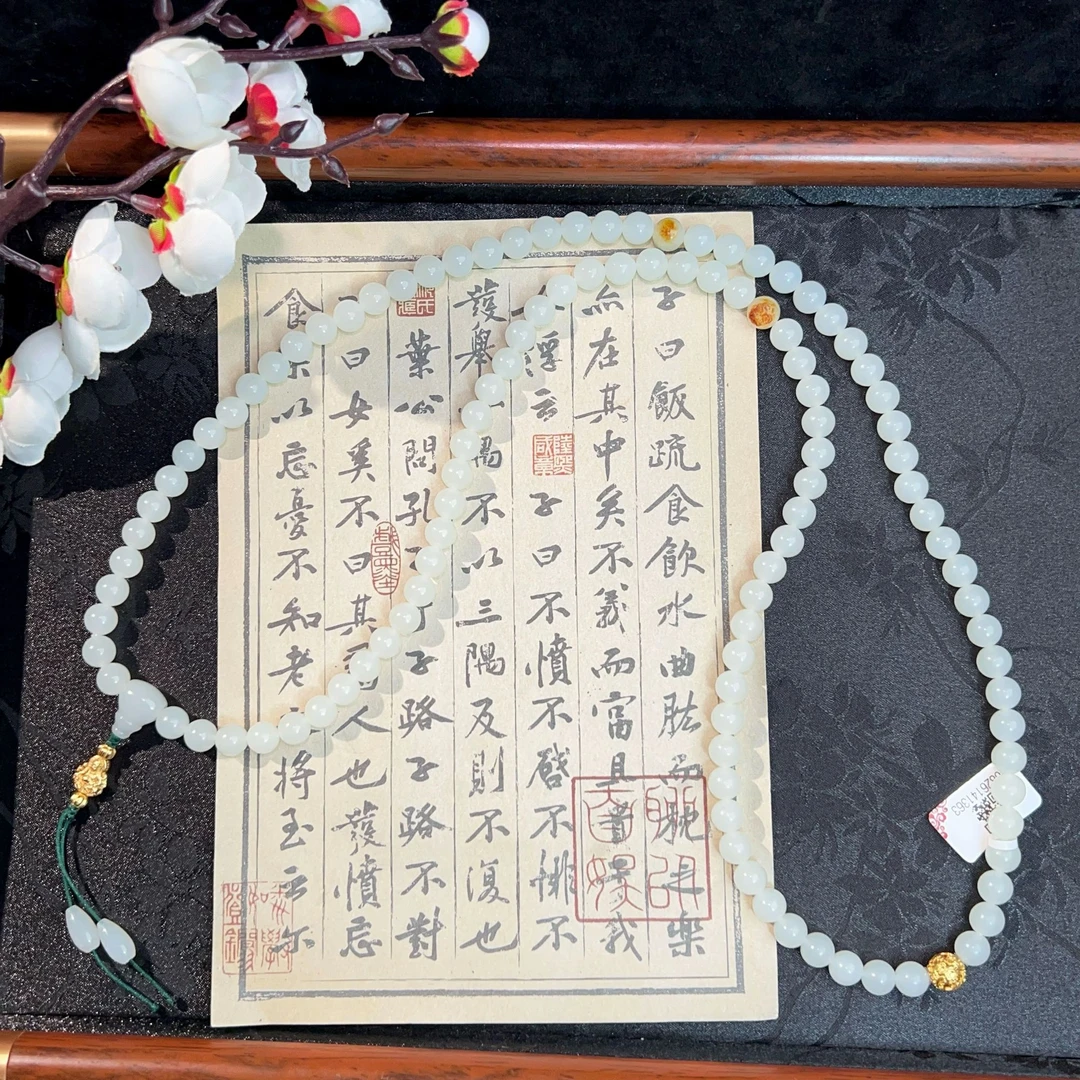 子曰飯疏食飲水曲肱而枕之樂
亦在其中矣不義而富且貴我
浮云子曰不憤不啓不悱不
發舉一隅不以三隅反則不復也
葉公問孔子子路子路不對
曰女奚不曰其人也發憤忘
食樂以忘憂不知老之將至云尔
626141363